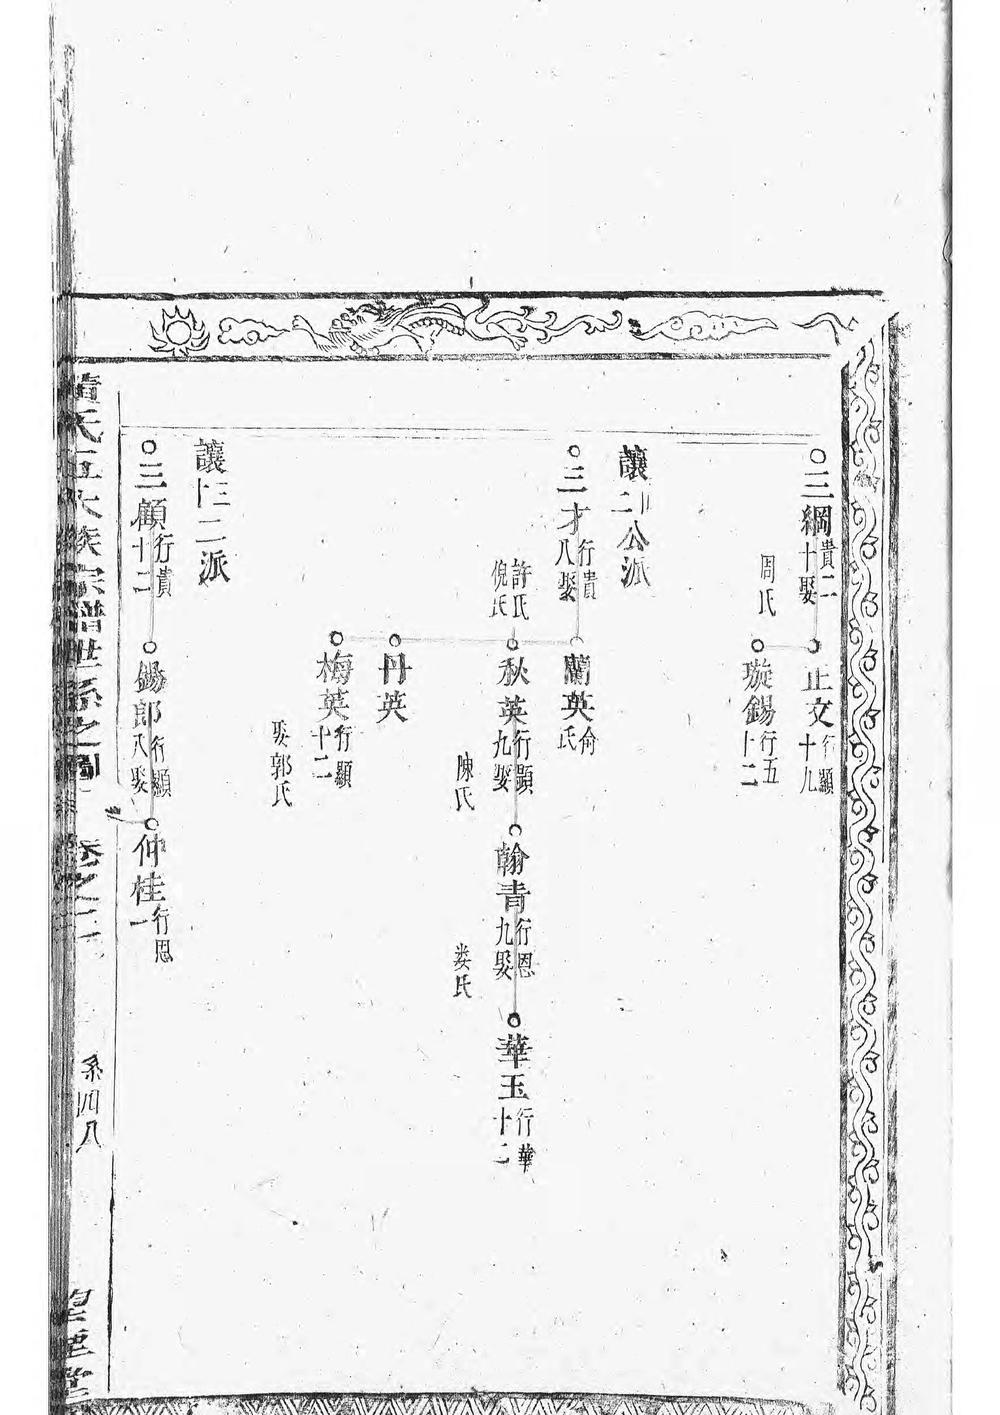 三綱貴二十娶
周氏
正文行顯十九
璇錫行五十二
讓二公派
三才行貴八娶
許氏
倪氏
蘭英俞氏
秋英行顯九娶
陳氏
翰青行恩九娶
娄氏
華玉行華十二
丹英
梅英行顯十二
娶郭氏
讓十三二派
三顧行貴十二
錫郎行顯八娶
仲桂行恩一
黃氏五大族宗譜世系之圖
卷之二
系四八